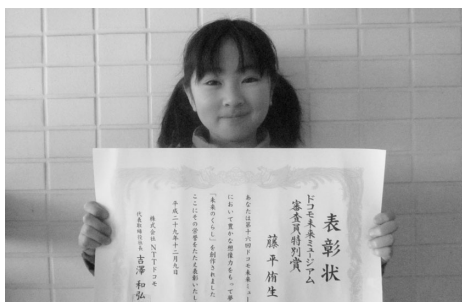 表彰状
ドコモ未来ミュージアム
審査員特別賞
藤平侑生
あなたは第十六回ドコモ未来ミュー
において豊かな想像力をもって夢
「未来のくらし」を創作されました
ここにその栄誉をたたえ表彰いたし
平成二十九年十二月九日
株式会社NTTドコモ
代表取締役社長 吉澤和弘